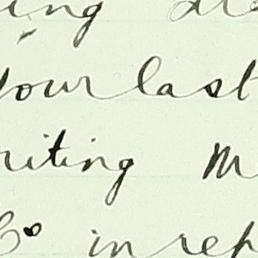 ing
your last
writing M
Co in rep